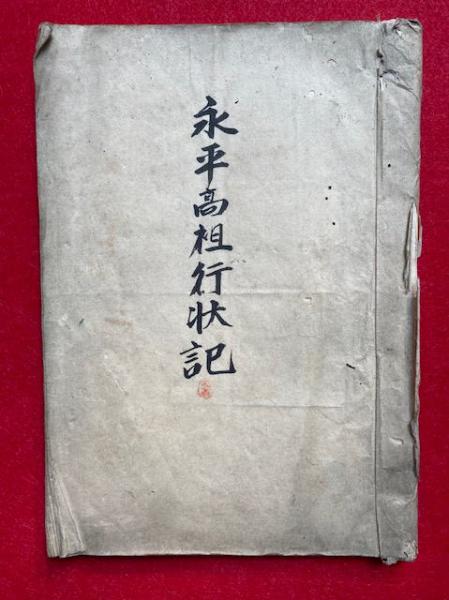 永平高祖行状記